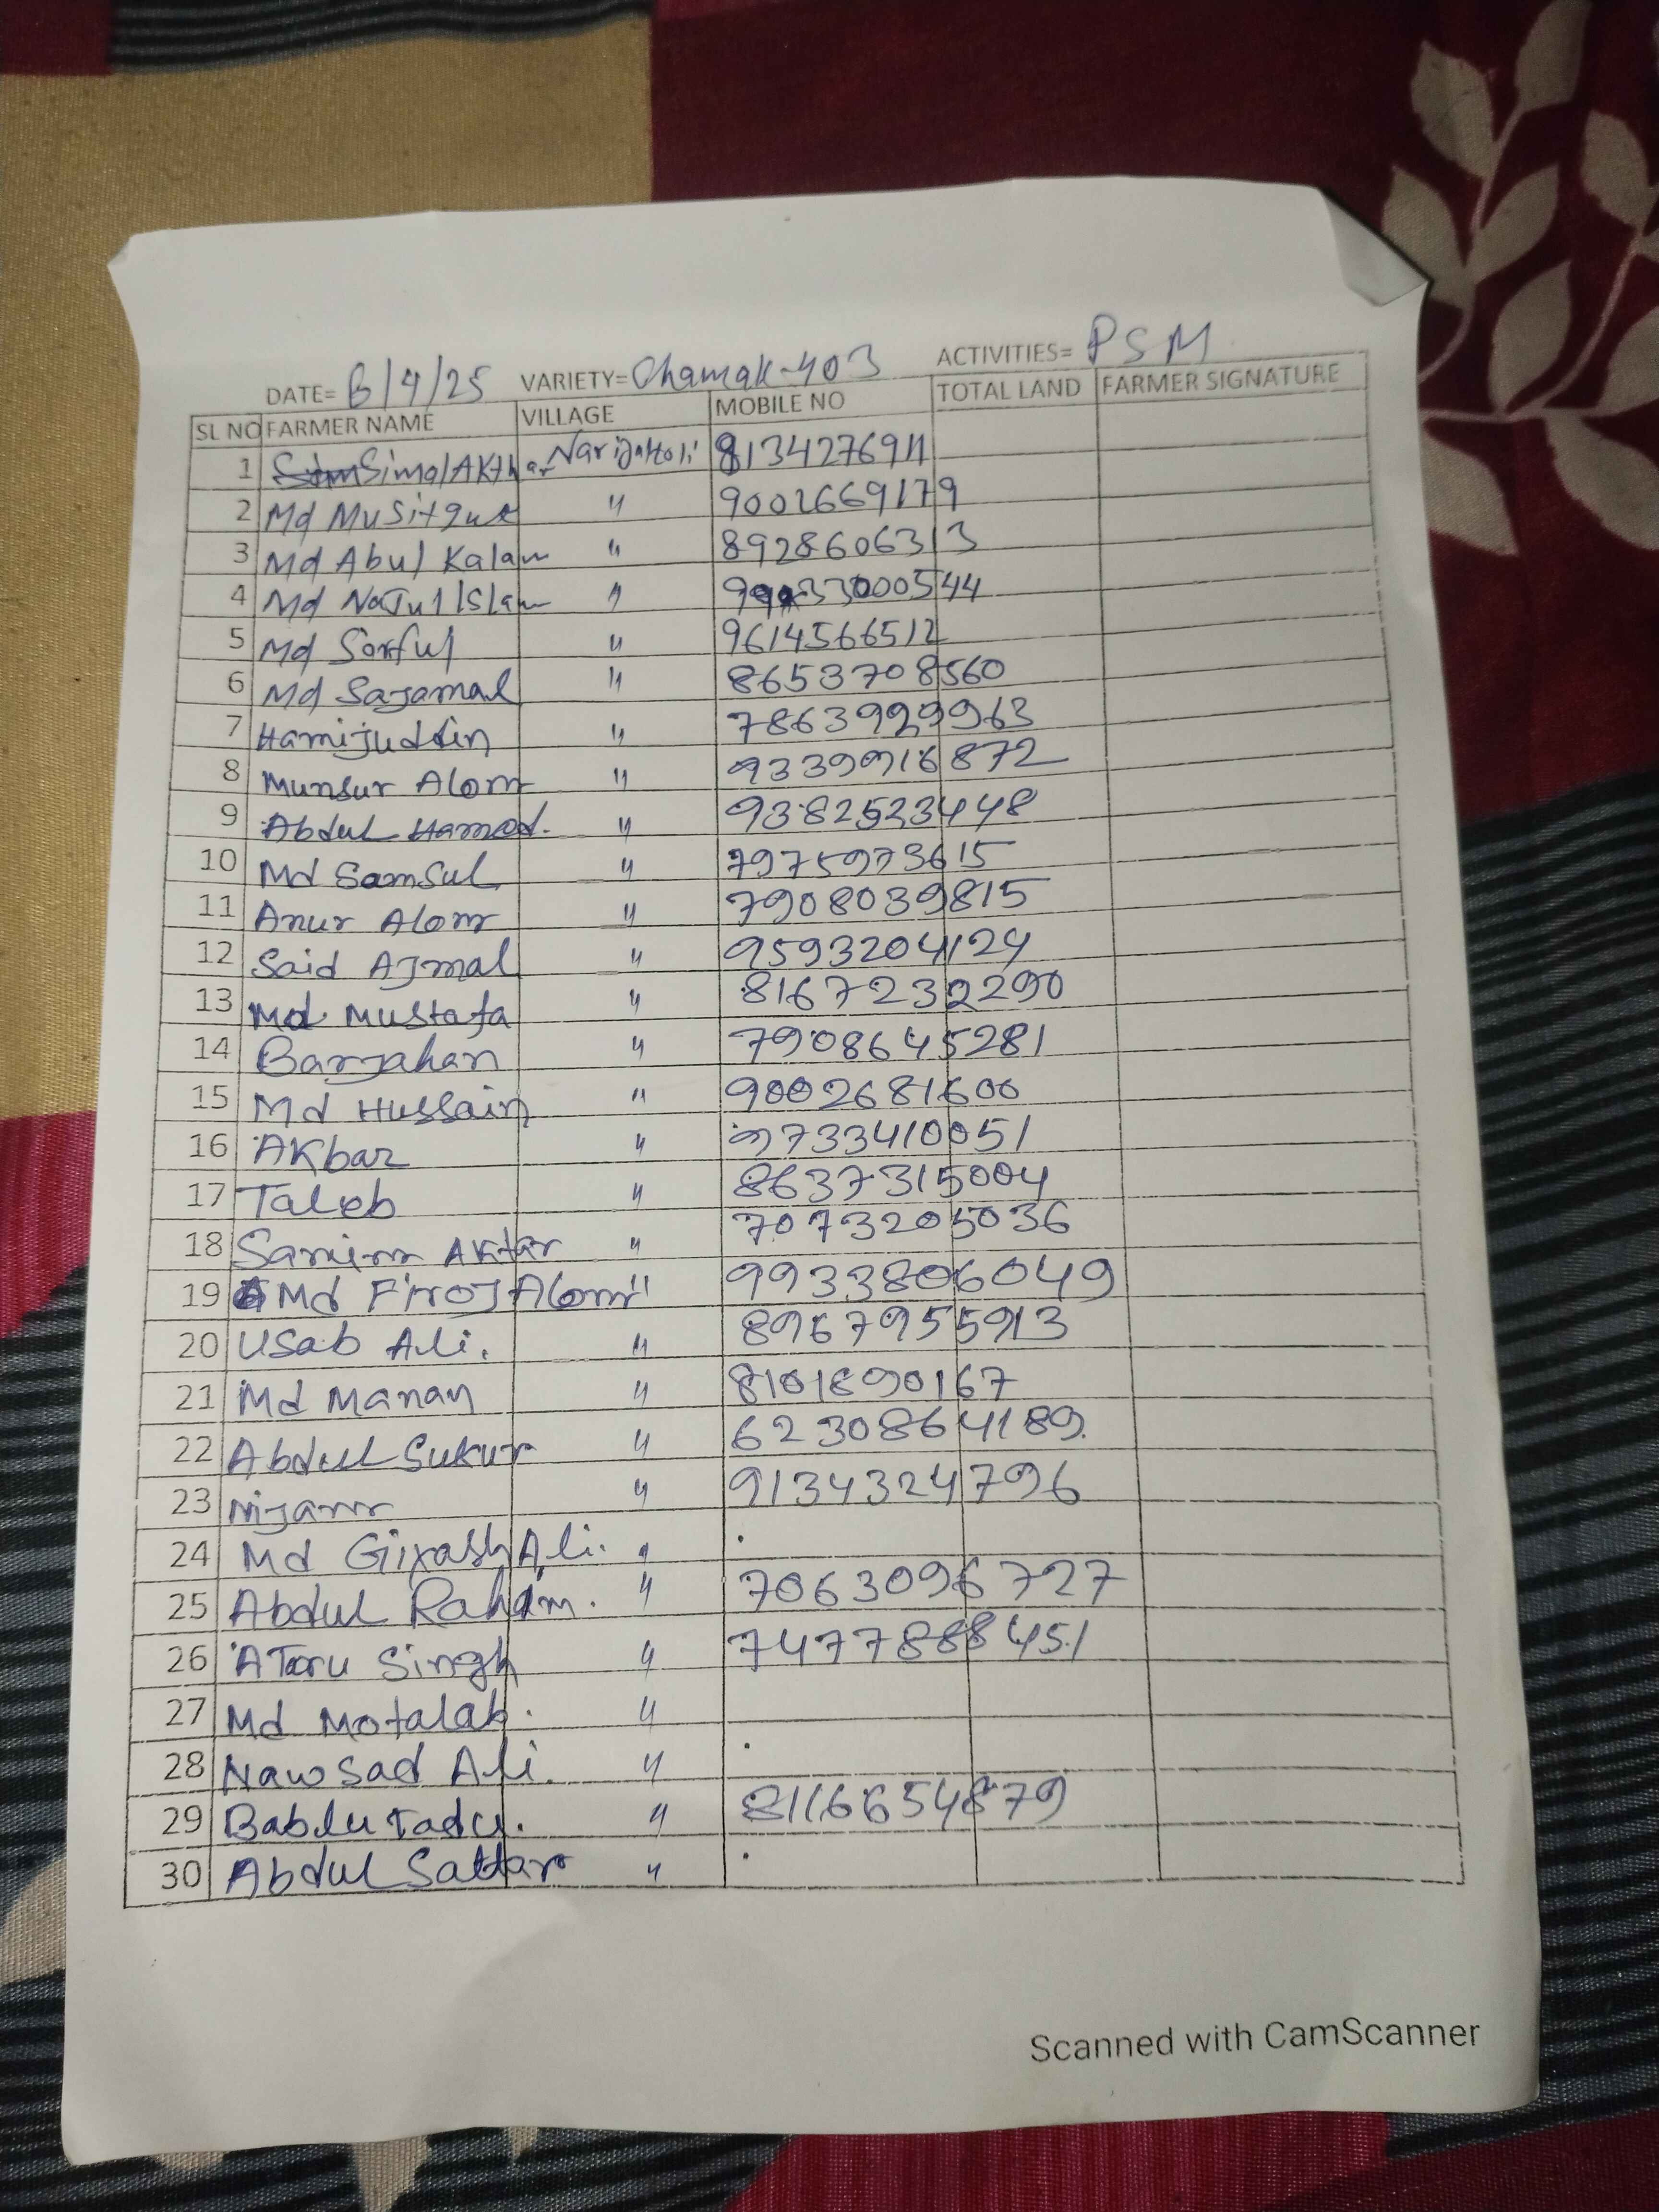 DATE= B/4/25 VARIETY= Chamak-403 ACTIVITIES= PSM
SL NO FARMER NAME VILLAGE MOBILE NO TOTAL LAND FARMER SIGNATURE
1 Simal Akthar Narijaltoli 8134276911
2 Md Musitque " 9002669179
3 Md Abul Kalam " 8928606313
4 Md NaJul Islam "
5 Md Sorful " 9614566512
6 Md Sajamal " 8653708560
7 Hamijuddin " 7863929963
8 Munsur Alom " 9339916872
9 Abdul Hamod. " 9382523448
10 Md Samsul " 7975973615
11 Anur Alom " 7908039815
12 Said AJmal " 9593204124
13 Md. Mustafa " 8167232290
14 Barjahan " 7908645281
15 Md Hussain " 9002681600
16 AKbar " 9733410051
17 Taleb " 8637315004
18 Samim Aktar " 7073205036
19 Md FiroJ Alom " 9933806049
20 Usab Ali. " 8967955913
21 Md Manan " 8101890167
22 Abdul Sukur " 6230864189.
23 Nijam " 9134324796
24 Md Giyash Ali. "
25 Abdul Rahim. " 7063096727
26 ATaru Singh " 7477888451
27 Md Motalab. "
28 Nawsad Ali. "
29 Bablu Tadu. " 8116654879
30 Abdul Sattar "
Scanned with CamScanner